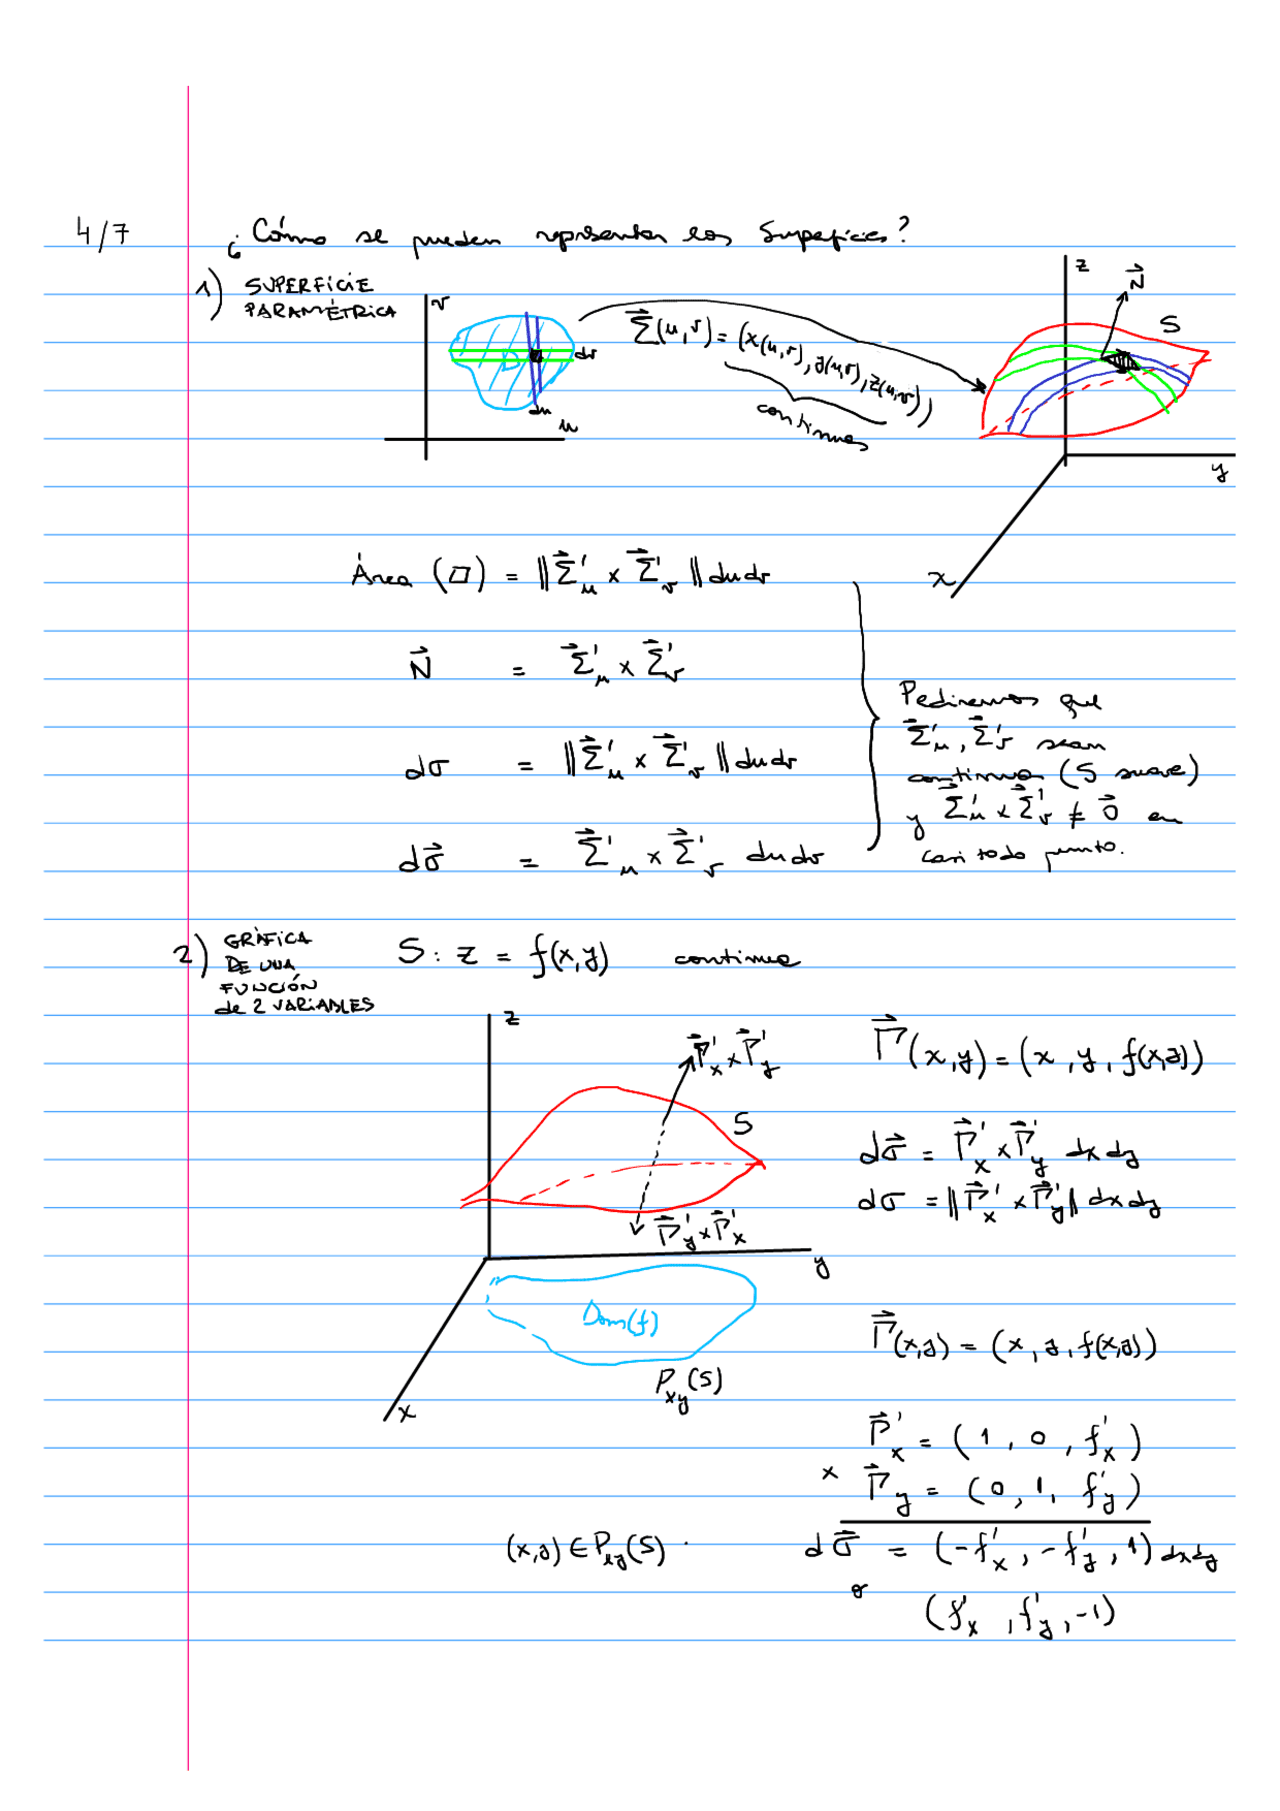 4/7 ¿Cómo se pueden representar las Superficies?
1) SUPERFICIE
PARAMÉTRICA
v
D
dv
du
u
Σ⃗(u,v) = (x(u,v), y(u,v), z(u,v))
continuas
z
N⃗
S
y
x
Área (▱) = ‖Σ⃗'u × Σ⃗'v‖ du dv
N⃗ = Σ⃗'u × Σ⃗'v
dσ = ‖Σ⃗'u × Σ⃗'v‖ du dv
dσ⃗ = Σ⃗'u × Σ⃗'v du dv
Pediremos que
Σ⃗'u, Σ⃗'v sean
continuas (S suave)
y Σ⃗'u × Σ⃗'v ≠ 0⃗ en
casi todo punto.
2) GRÁFICA
DE UNA
FUNCIÓN
de 2 VARIABLES
S: z = f(x,y) continua
z
Γ⃗'x × Γ⃗'y
S
Γ⃗'y × Γ⃗'x
y
Dom(f)
Pxy(S)
x
Γ⃗(x,y) = (x, y, f(x,y))
dσ⃗ = Γ⃗'x × Γ⃗'y dx dy
dσ = ‖Γ⃗'x × Γ⃗'y‖ dx dy
Γ⃗(x,y) = (x, y, f(x,y))
Γ⃗'x = (1, 0, f'x)
× Γ⃗y = (0, 1, f'y)
(x,y) ∈ Pxy(S) . dσ⃗ = (-f'x, -f'y, 1) dx dy
o
(f'x, f'y, -1)